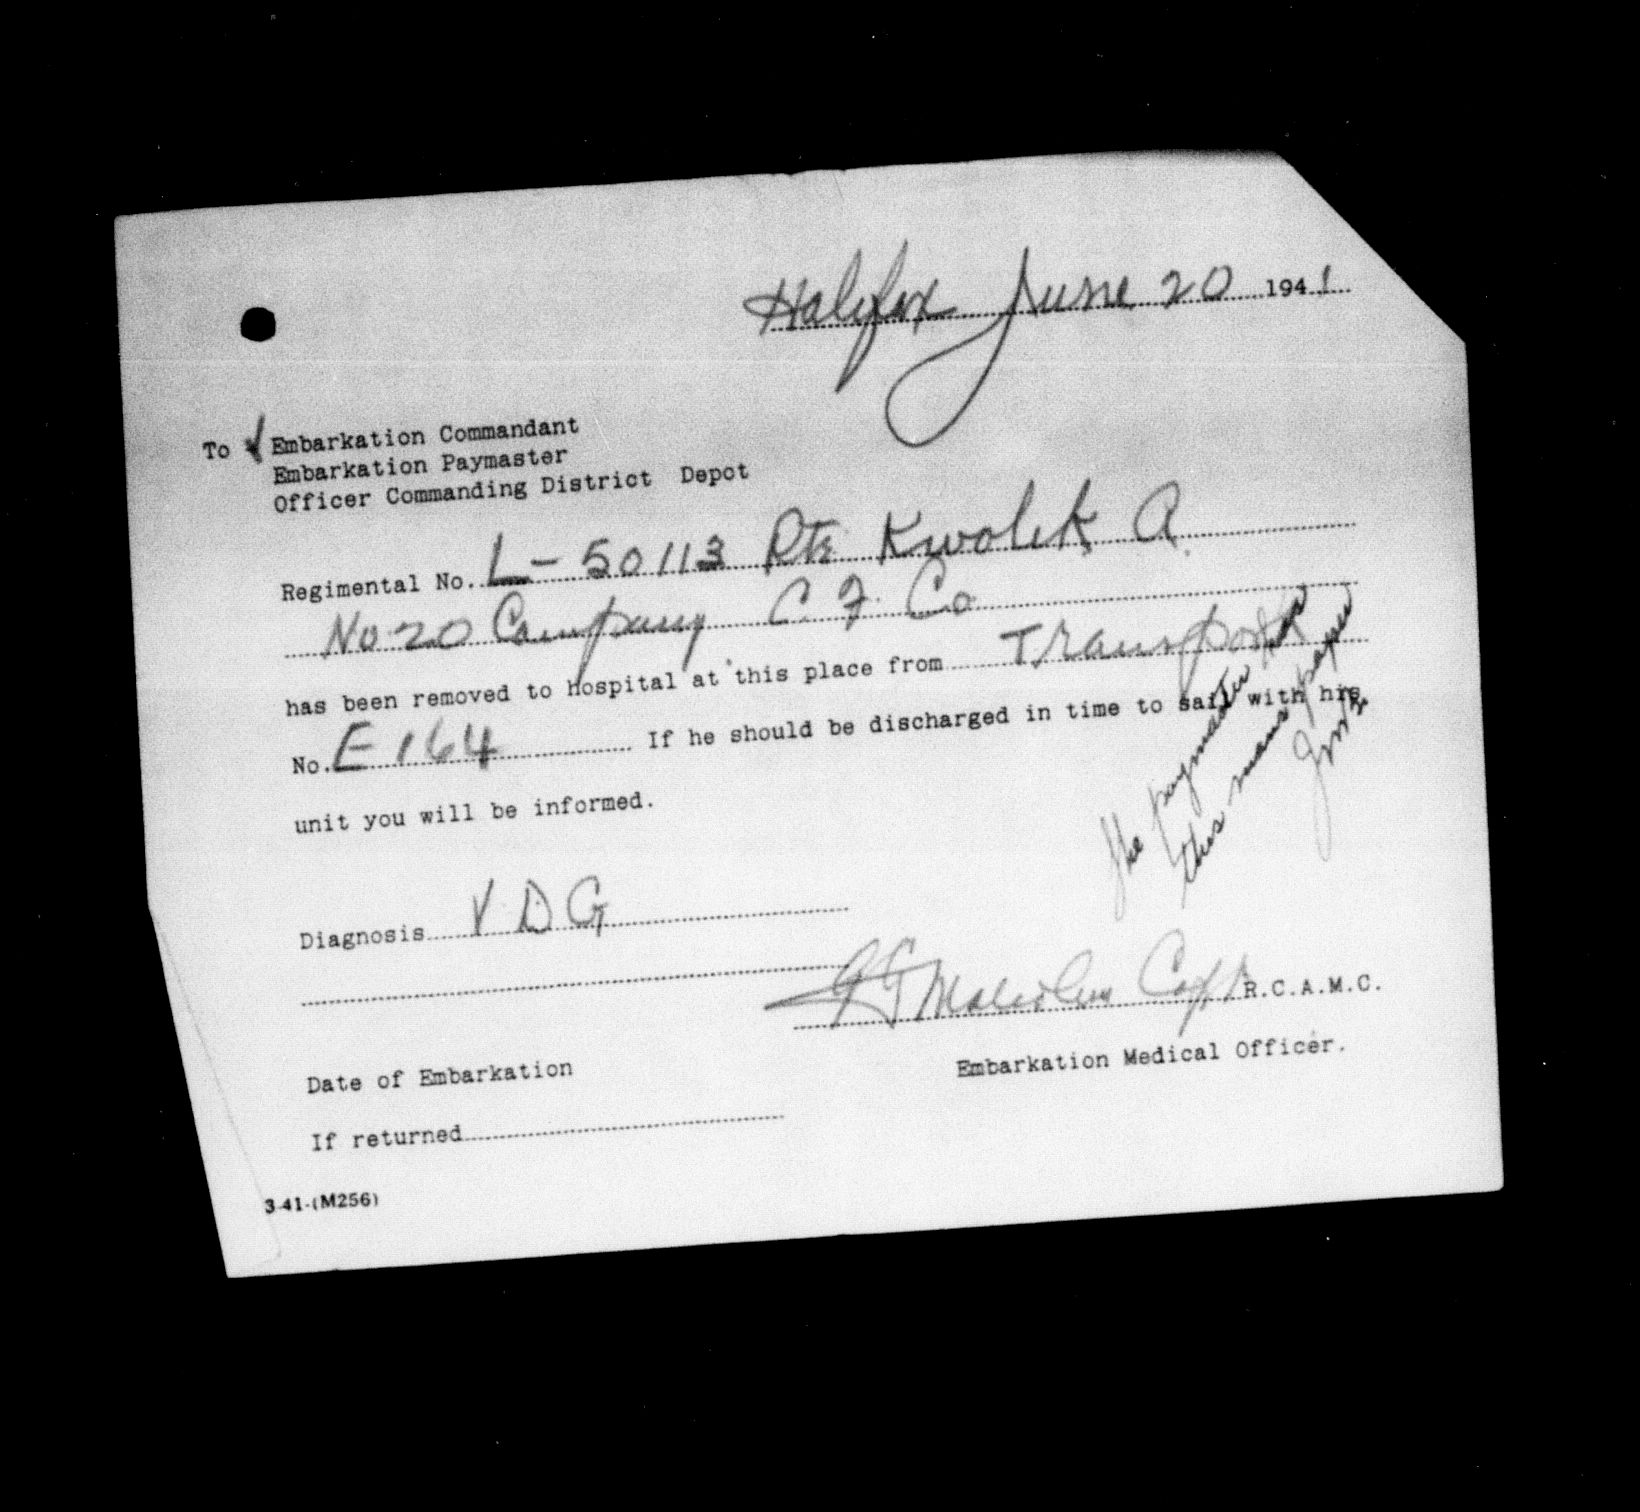 Halifax June 20 1941
To ✓ Embarkation Commandant
Embarkation Paymaster
Officer Commanding District Depot
Regimental No. L-50113 Pte Kwolek A.
No 20 Company C. F. Co
has been removed to hospital at this place from Transport
No. E 164 If he should be discharged in time to sail with his
unit you will be informed.
The paymaster has
this mans papers
Diagnosis V D G
Malcolm Capt R.C.A.M.C.
Embarkation Medical Officer.
Date of Embarkation
If returned
3-41-(M256)